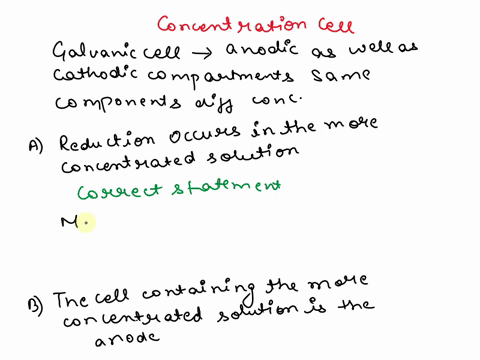 Concentration Cell
Galvanic cell → anodic as well as
cathodic compartments same
components diff conc.
A) Reduction occurs in the more
concentrated solution
Correct statement
M
B) The cell containing the more
concentrated solution is the
anode